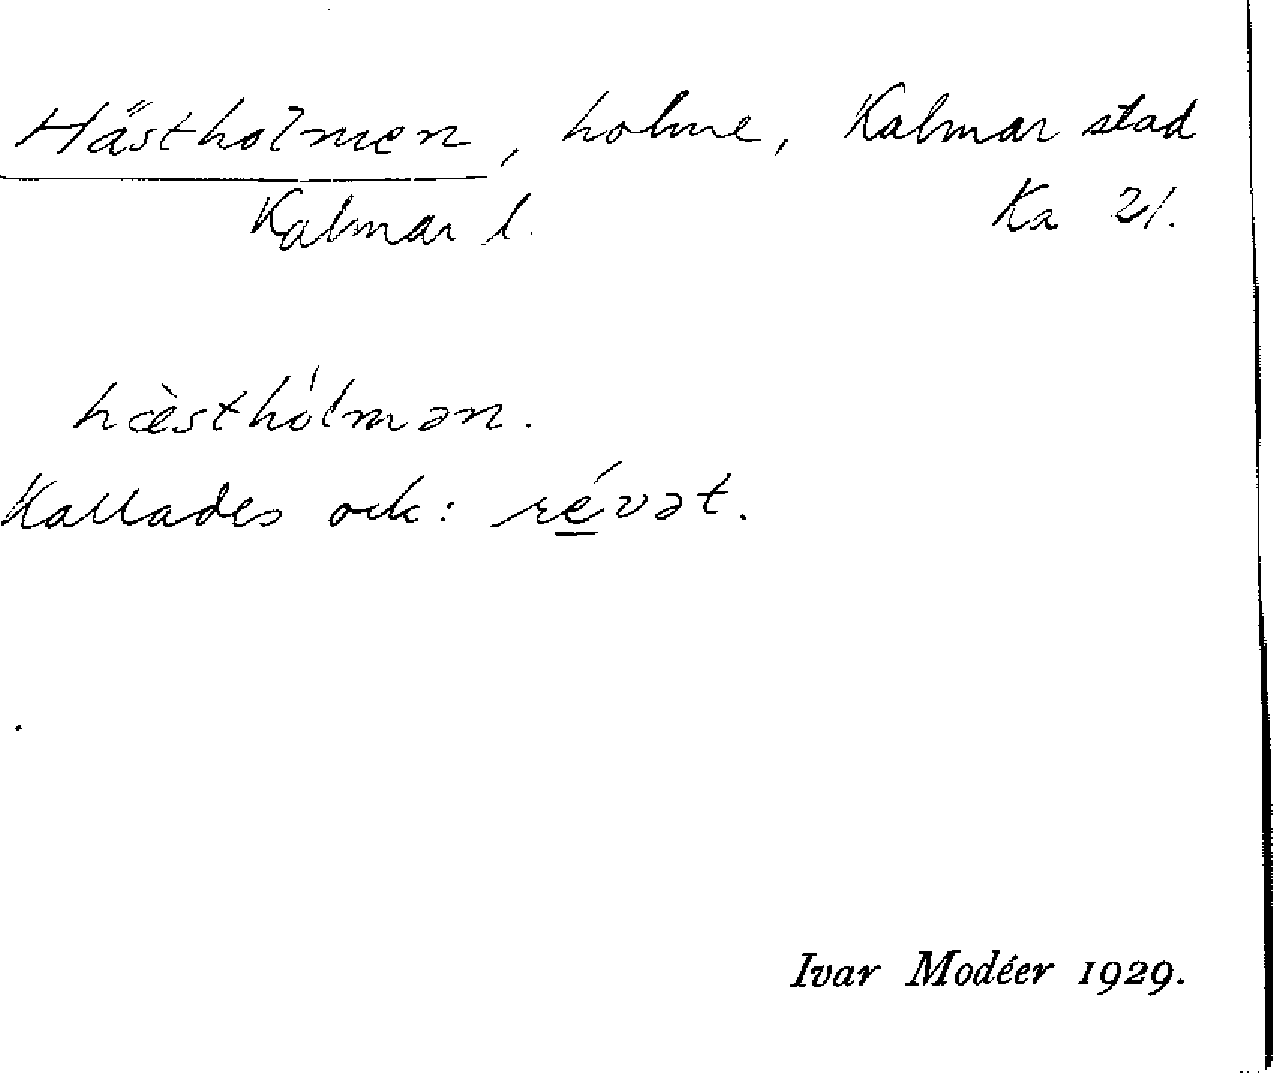 Hästholmen, holme, Kalmar stad
Kalmar l. Ka 21.
hæ̀sthól'mən.
Kallades ock: ré̲vət.
Ivar Modéer 1929.